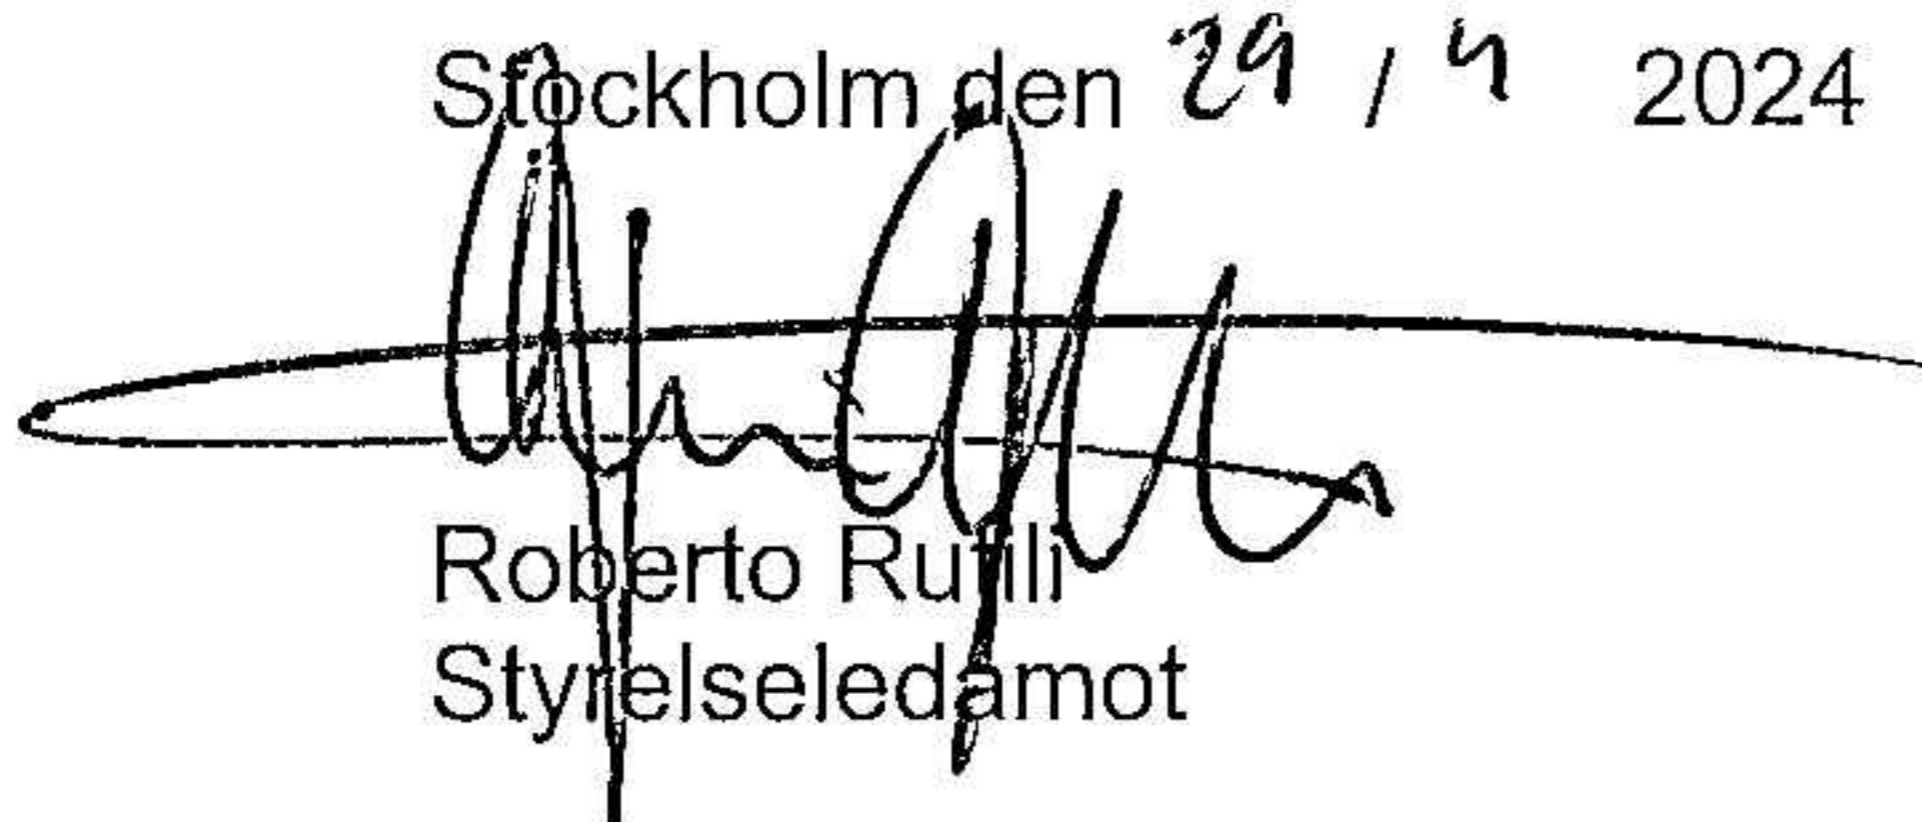 Stockholm den 29 / 4 2024
Roberto Rutili
Styrelseledamot